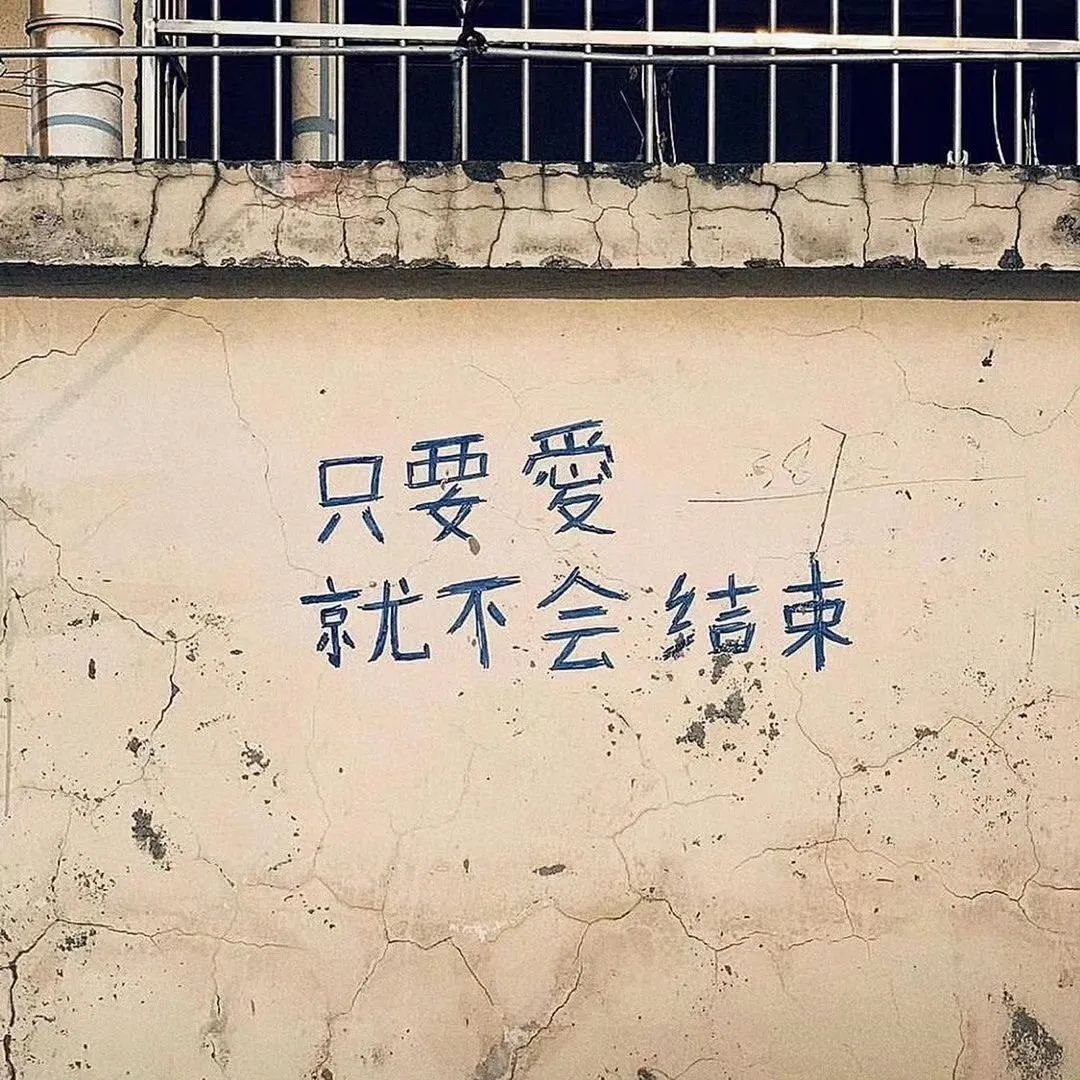 只要愛
就不会结束